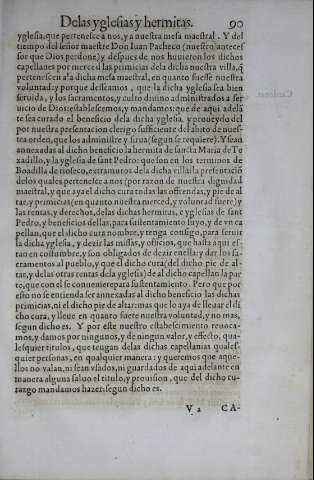 Delas yglesias y hermitas. 90
yglesia, que pertenesce a nos, y a nuestra mesa maestral. Y del
tiempo del señor maestre Don Iuan Pacheco (nuestro anteces
sor que Dios perdone) y despues de nos huuieron los dichos
capellanes por merced las primicias dela dicha nuestra villa, q̃
pertenescen ala dicha mesa maestral, en quanto fuesse nuestra
voluntad: y porque desseamos, que la dicha yglesia sea bien
seruida, y los sacramentos, y culto diuino administrados a ser
uicio de Dios: establescemos, y mandamos: que de aqui adelã
te sea curado el beneficio dela dicha yglesia, y proueydo del
por nuestra presentacion clerigo sufficiente del abito de nues-
tra orden, que los administre, y sirua (segun se requiere). Y sean
annexadas al dicho beneficio la hermita de sancta Maria de Te
xadillo, y la yglesia de sant Pedro: que son en los terminos de
Boadilla de rioseco, extramuros dela dicha villa: la presentaciõ
delos quales pertenesce a nos (por razon de nuestra dignidad
maestral, y que aya el dicho cura todas las offrendas, y pie de al
tar, y primicias (en quanto nuestra merced, y voluntad fuere) y
las rentas, y derechos, delas dichas hermitas, e yglesias de sant
Pedro, y beneficios dellas, para sustentamiento suyo, y de vn ca
pellan, que el dicho cura nombre, y tenga consigo, para seruir
la dicha yglesia, y dezir las missas, y oficios, que hasta aqui es-
tan en costumbre, y son obligados de dezir enella: y dar los sa-
cramentos al pueblo, y que el dicho cura (del dicho pie de al-
tar, y delas otras rentas dela yglesia) de al dicho capellan la par
te, que con el se conueniere para su sustentamiento. Pero que por
esto no se entienda ser annexadas al dicho beneficio las dichas
primicias, ni el dicho pie de altar: mas que lo aya de lleuar el di
cho cura, y lleue en quanto fuere nuestra voluntad, y no mas,
segun dicho es. Y por este nuestro establescimiento reuoca-
mos, y damos por ningunos, y de ningun valor, y effecto, qua-
lesquier titulos, que tengan delas dichas capellanias quales-
quier personas, en qualquier manera: y queremos que aque-
llos no valan, ni sean vsados, ni guardados de aqui adelante en
manera alguna saluo el titulo, y prouision, que del dicho cu-
razgo mandamos hazer: segun dicho es.
V 2 CA-